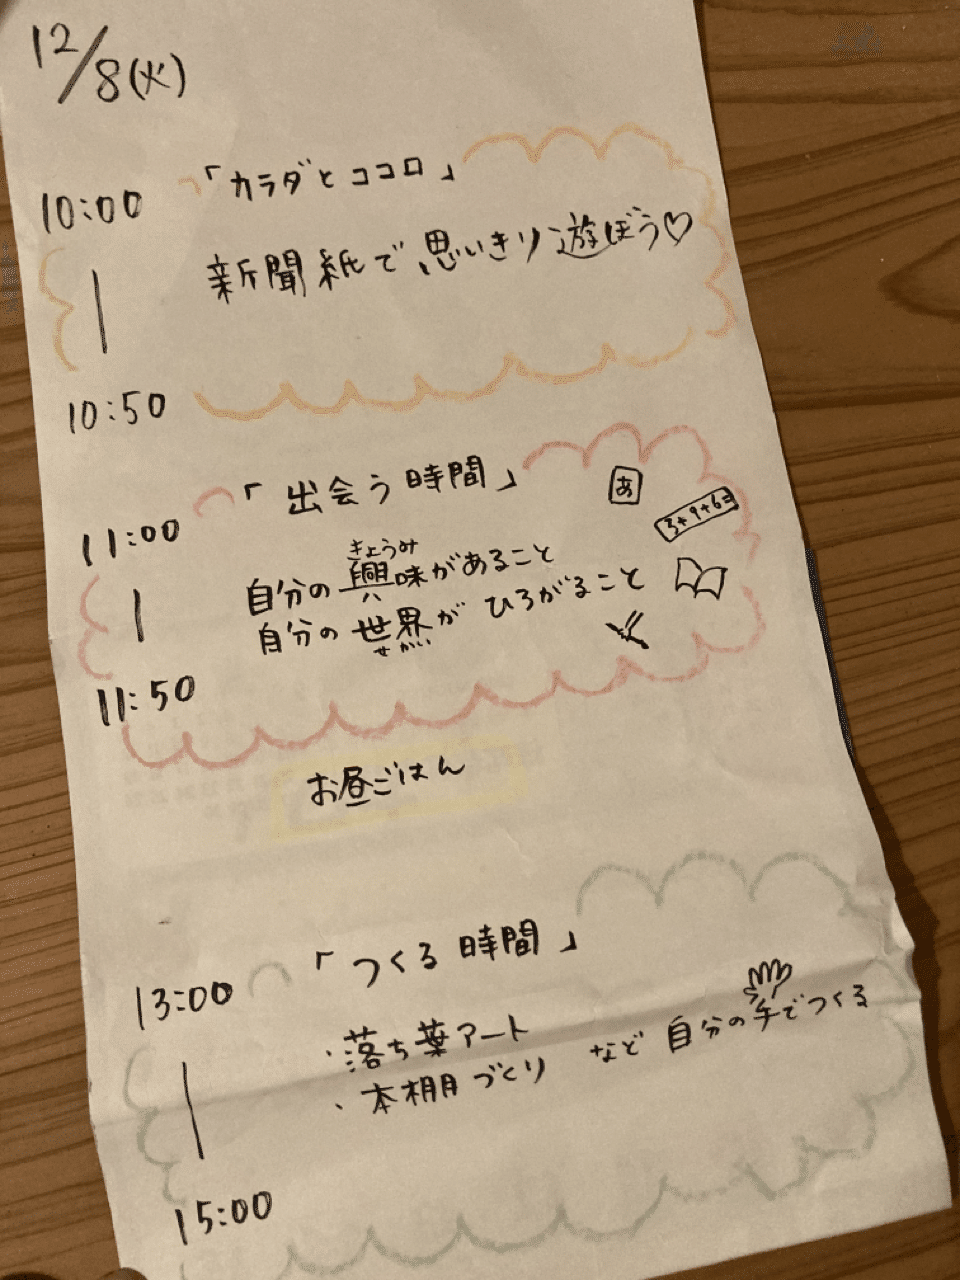 12/8(火)
10:00 「カラダとココロ」
|
新聞紙で思いきり遊ぼう♡
10:50
11:00 「出会う時間」
あ
3+9+6=
|
きょうみ
自分の興味があること
自分の世界がひろがること
せかい
11:50
お昼ごはん
13:00 「つくる時間」
|
・落ち葉アート
・本棚づくり など 自分の手でつくる
15:00